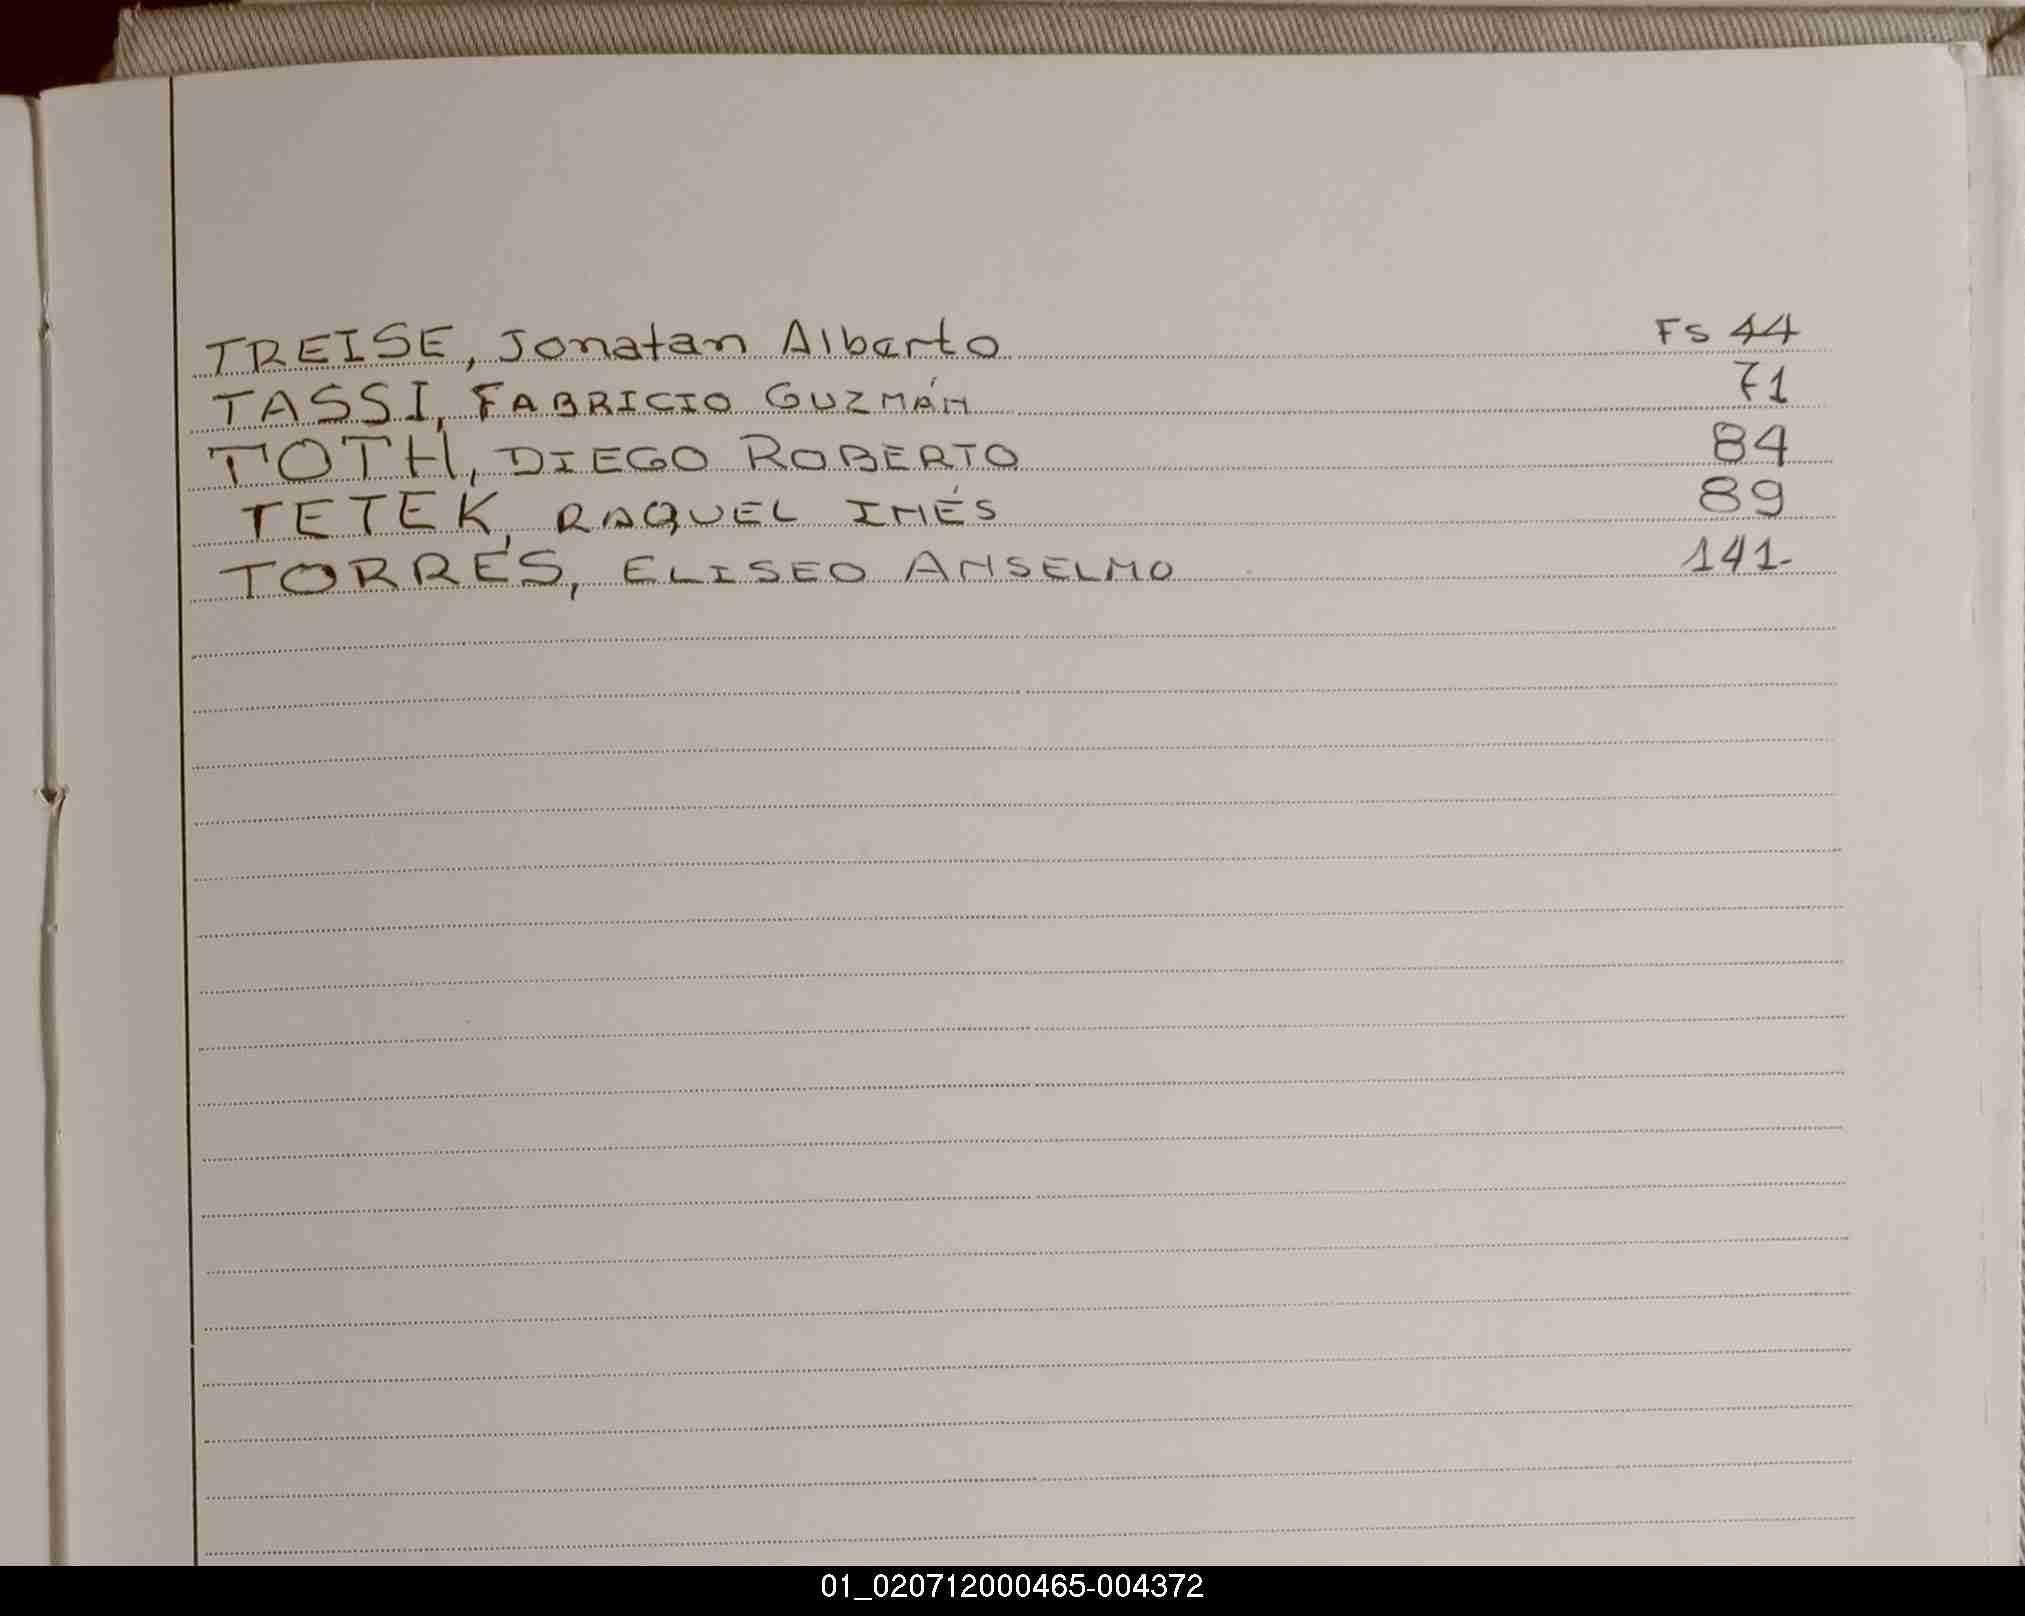 TREISE, Jonatan Alberto Fs 44
TASSI, FABRICIO GUZMÁN 71
TOTH, DIEGO ROBERTO 84
TETEK, RAQUEL INÉS 89
TORRES, ELISEO ANSELMO 141-
01_020712000465-004372